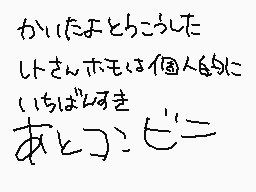 かいたよとうこうした
レトさんホモは個人的に
いちばんすき
あとコンビニ